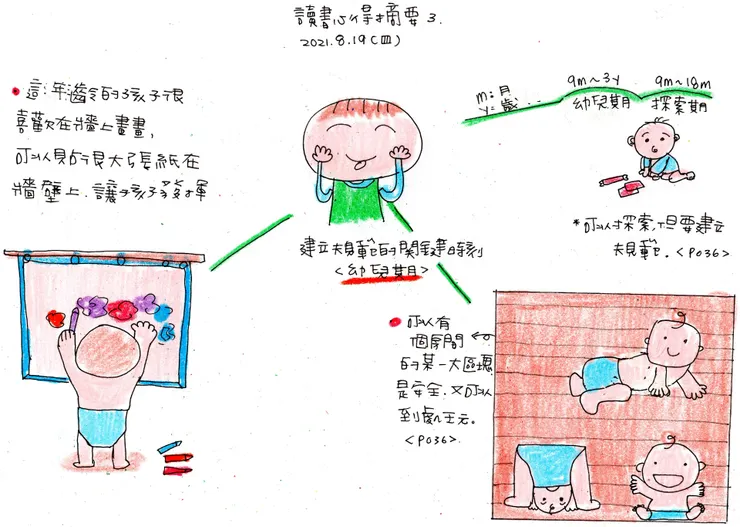 讀書心得摘要3.
2021.8.19(四)
這年齡的孩子很
喜歡在牆上畫畫,
可以貼很大張紙在
牆壁上.讓孩子發揮
m:月
y=歲...
9m~3y
幼兒期
9m~18m
探索期
*可以探索,但要建立
規範.<P036>
建立規範的關鍵時刻
<幼兒期>
可以有
個房間
的某一大區塊
是安全.又可以
到處玩.
<P036>.